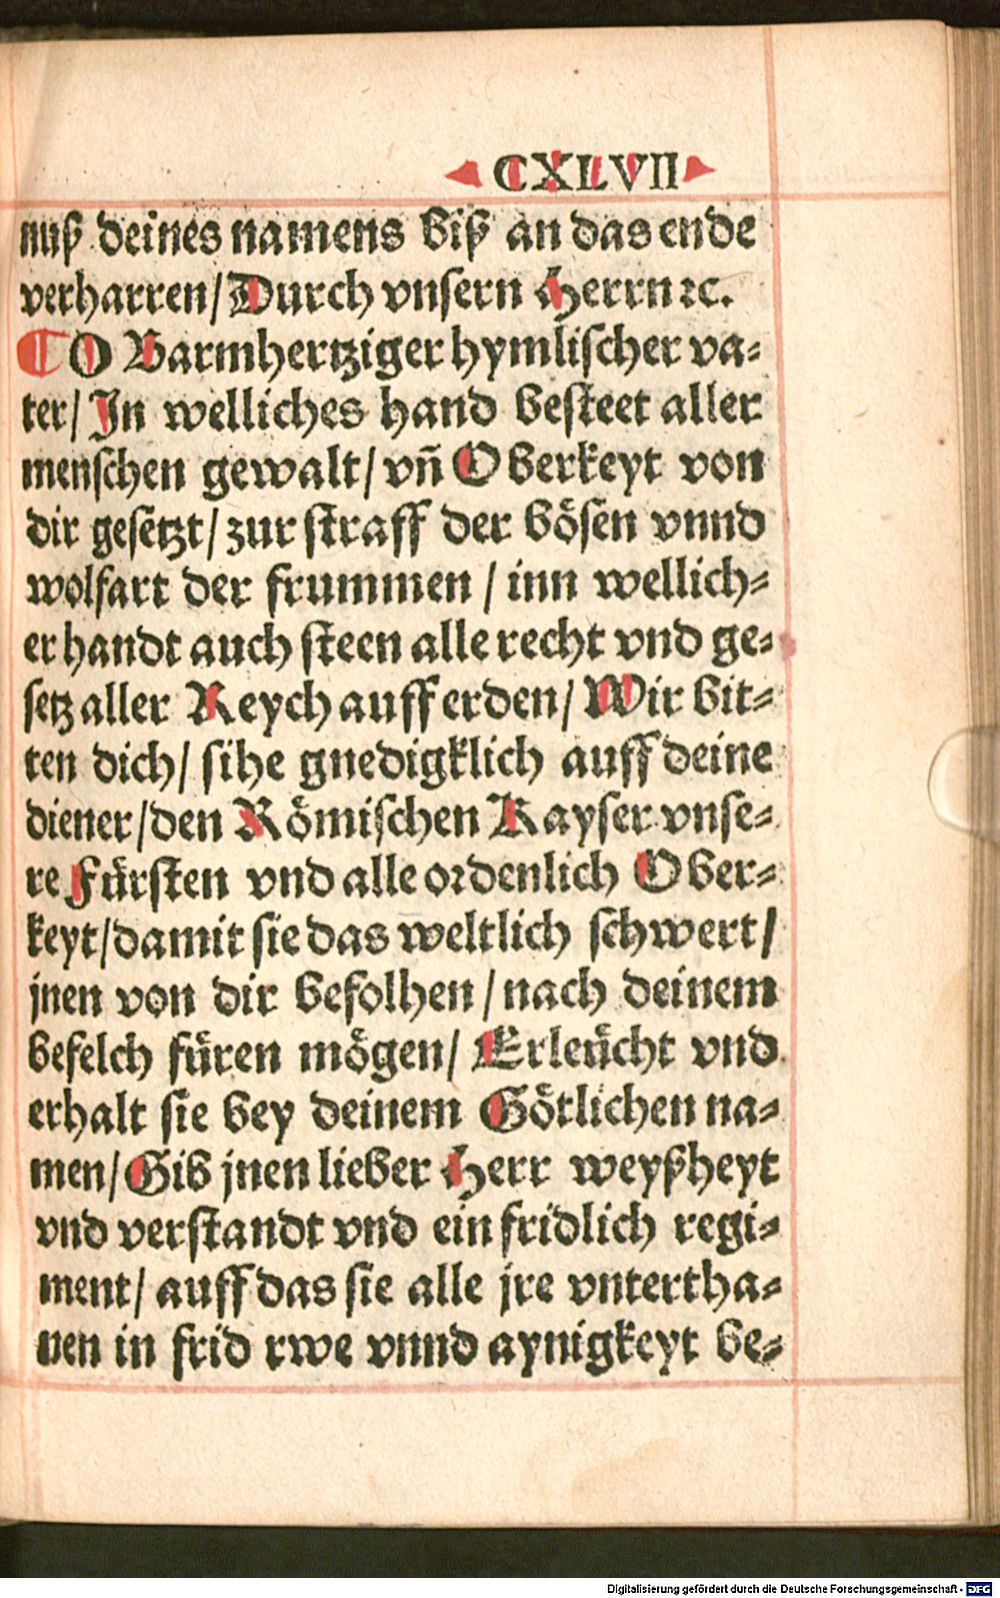 CXLVII
nuß deines namens biß an das ende
verharren/Durch vnsern Herrn ꝛc.
¶ O Barmhertziger hymlischer va⸗
ter/ In welliches hand besteet aller
menschen gewalt/ vñ Oberkeyt von
dir gesetzt/ zur straff der bösen vnnd
wolfart der frummen / inn wellich⸗
er handt auch steen alle recht vnd ge⸗
setz aller Reych auff erden/ Wir bit⸗
ten dich/ sihe gnedigklich auff deine
diener/den Römischen Kayser vnse⸗
re Fürsten vnd alle ordenlich Ober⸗
keyt/damit sie das weltlich schwert/
jnen von dir befolhen / nach deinem
befelch füren mögen/ Erleücht vnd
erhalt sie bey deinem Götlichen na⸗
men/ Gib jnen lieber Herr weyßheyt
vnd verstandt vnd ein fridlich regi⸗
ment/ auff das sie alle jre vntertha⸗
nen in frid rwe vnnd aynigkeyt be⸗
Digitalisierung gefördert durch die Deutsche Forschungsgemeinschaft - DFG